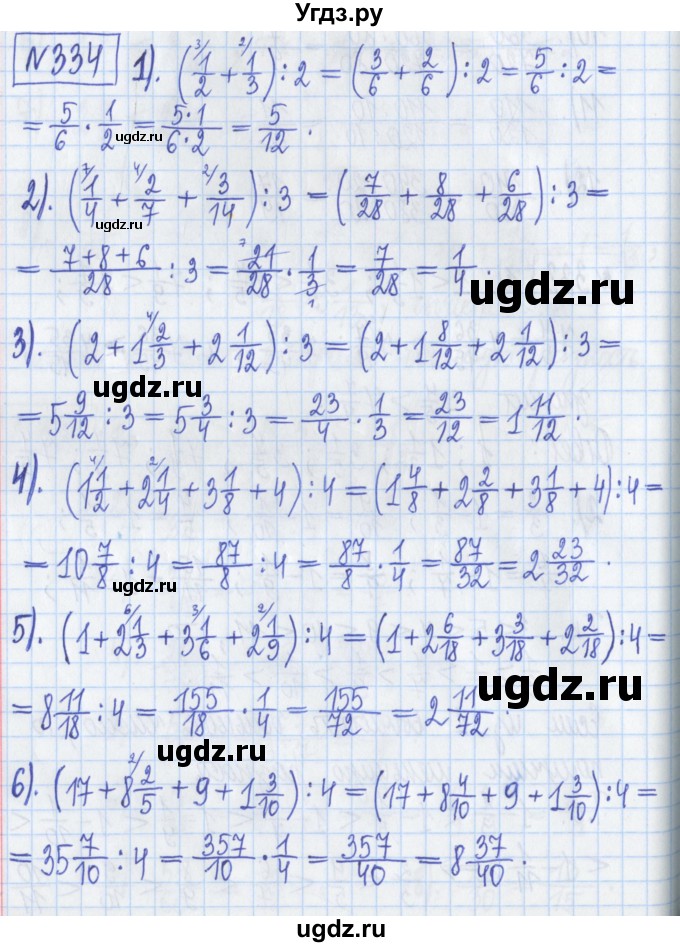 Угдз.ру
№334 1). (3/ 1/2 + 2/ 1/3) : 2 = (3/6 + 2/6) : 2 = 5/6 : 2 =
= 5/6 · 1/2 = 5·1/6·2 = 5/12 .
ugdz.ru
ugdz.ru
2). (7/ 1/4 + 4/ 2/7 + 2/ 3/14) : 3 = (7/28 + 8/28 + 6/28) : 3 =
ugdz.ru
= 7+8+6/28 : 3 = 7 21/28 · 1/3 1 = 7/28 = 1/4 .
ugdz.ru
3). (2 + 1 4/ 2/3 + 2 1/12) : 3 = (2 + 1 8/12 + 2 1/12) : 3 =
ugdz.ru
= 5 9/12 : 3 = 5 3/4 : 3 = 23/4 · 1/3 = 23/12 = 1 11/12 .
4). (1 4/ 1/2 + 2 2/ 1/4 + 3 1/8 + 4) : 4 = (1 4/8 + 2 2/8 + 3 1/8 + 4) : 4 =
= 10 7/8 : 4 = 87/8 : 4 = 87/8 · 1/4 = 87/32 = 2 23/32 .
ugdz.ru
5). (1 + 2 6/ 1/3 + 3 3/ 1/6 + 2 2/ 1/9) : 4 = (1 + 2 6/18 + 3 3/18 + 2 2/18) : 4 =
ugdz.ru
= 8 11/18 : 4 = 155/18 · 1/4 = 155/72 = 2 11/72 .
ugdz.ru
6). (17 + 8 2/ 2/5 + 9 + 1 3/10) : 4 = (17 + 8 4/10 + 9 + 1 3/10) : 4 =
= 35 7/10 : 4 = 357/10 · 1/4 = 357/40 = 8 37/40 .
ugdz.ru
ugdz.ru